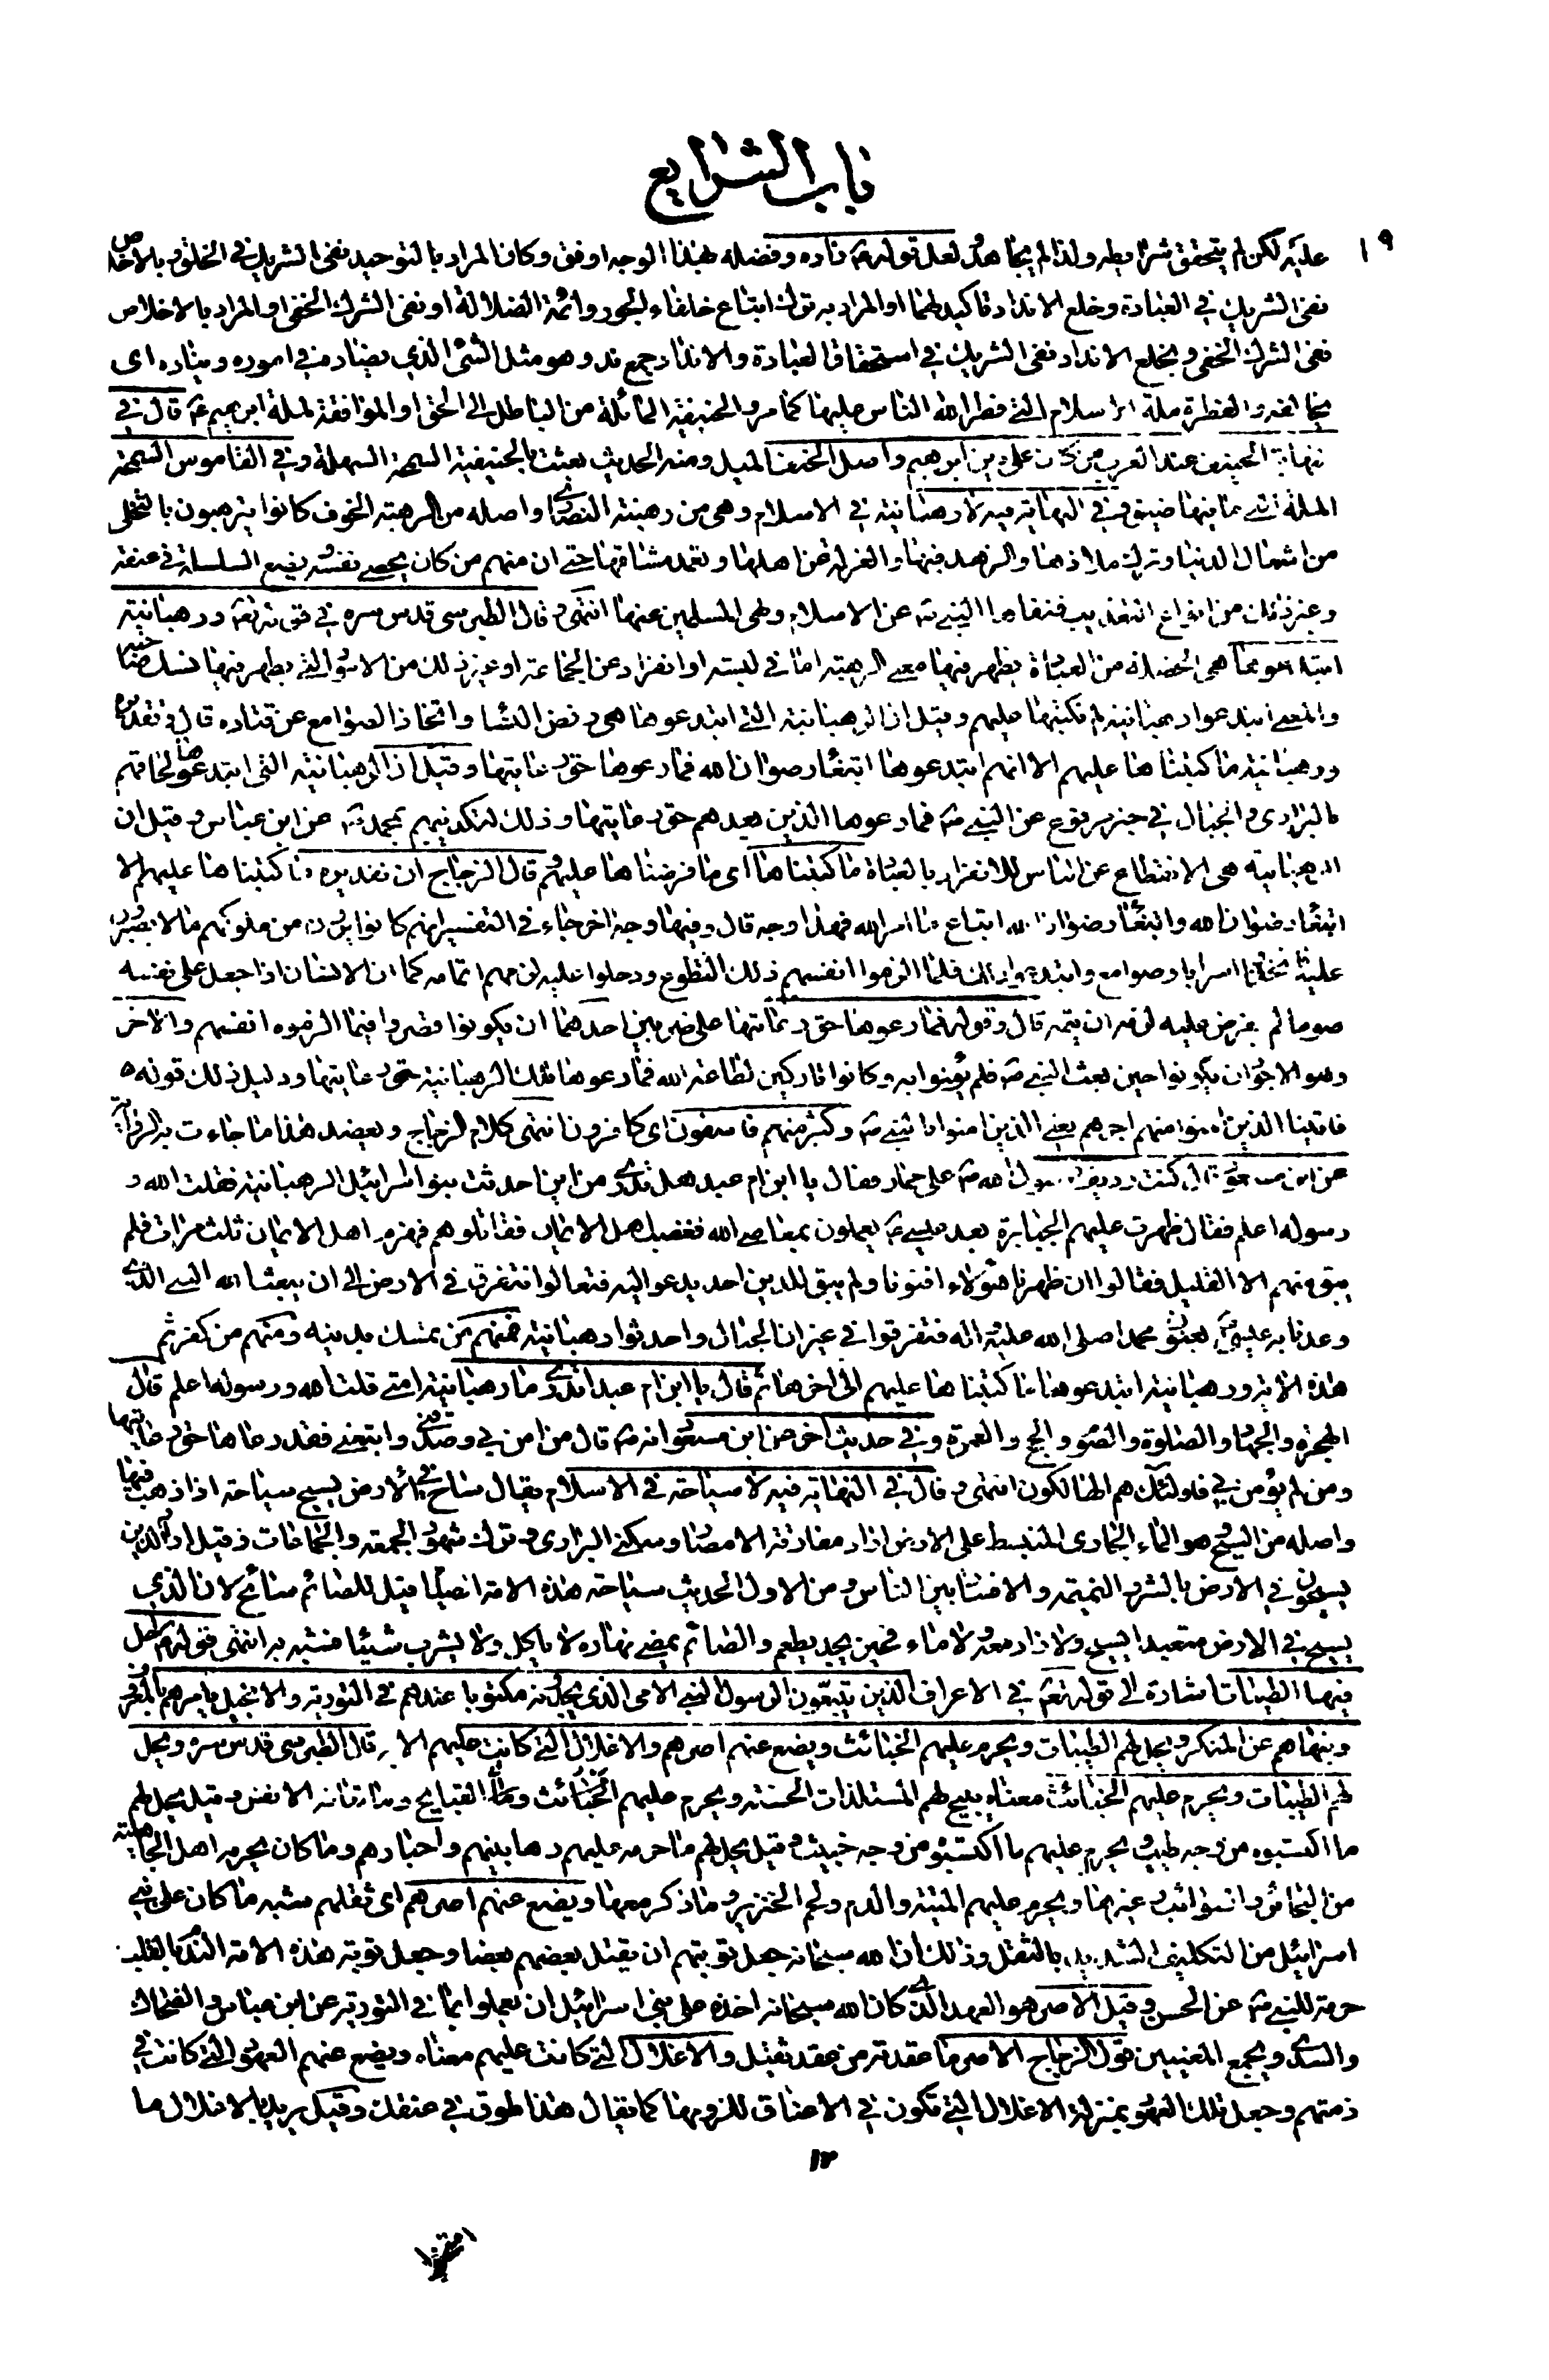 باب الشرايع
١٩
عليه لكن لم يتحقق شرايطه ولذا لم يجاهد لعل قوله ع زاده وفضله بهذا الوجه اوفق وكان المراد بالتوحيد نفى الشريك فى الخلق و بالاخلاص
نفى الشريك فى العبادة وخلع الانداد تاكيد لهما او المراد به ترك اتباع خلفاء الجور وائمة الضلالة او نفى الشرك الخفى او المراد بالاخلاص
نفى الشرك الخفى و بخلع الانداد نفى الشريك فى استحقاق العبادة والانداد جمع ند وهو مثل الشئ الذى يضاده فى اموره ويناده اى
يخالفه والفطرة ملة الاسلام التى فطر الله الناس عليها كما مر والحنيفية المائلة من الباطل الى الحق او الموافقة لملة ابرهيم ع قال فى
نهاية الحنيف عند العرب من كان على دين ابرهيم واصل الحنف الميل ومنه الحديث بعثت بالحنيفية السمحة السهلة وفى القاموس السمحة
الملة التى ما فيها ضيق و فى النهاية فيه لا رهبانية فى الاسلام وهى من رهبنة النصارى واصله من الرهبة الخوف كانوا يترهبون بالتخلى
من اشغال الدنيا وترك ملاذها والزهد فيها والعزلة عن اهلها وتعمد مشاقها حتى ان منهم من كان يخصى نفسه ويضع السلسلة فى عنقه
وغير ذلك من انواع التعذيب فنفاها النبى ص عن الاسلام ونهى المسلمين عنها انتهى و قال الطبرسى قدس سره فى قوله تعالى ورهبانية
ابتدعوها هى الخصلة من العبادة يظهر فيها معنى الرهبة اما فى لبسه او انفراد عن الجماعة او غير ذلك من الامور التى يظهر فيها نسك صاحبه
والمعنى ابتدعوا رهبانية لم نكتبها عليهم وقيل ان الرهبانية التى ابتدعوها هى رفض النساء واتخاذ الصوامع عن قتاده قال و تقديره
ورهبانية ما كتبناها عليهم الا انهم ابتدعوها ابتغاء رضوان الله فما رعوها حق رعايتها وقيل ان الرهبانية التى ابتدعوها لحاقهم
بالبرارى والجبال فى خبر مرفوع عن النبى ص فما رعوها الذين بعدهم حق رعايتها وذلك لتكذيبهم بمحمد ص عن ابن عباس و قيل ان
الرهبانية هى الانقطاع عن الناس للانفراد بالعبادة ما كتبناها اى ما فرضناها عليهم و قال الزجاج ان تقديره ما كتبناها عليهم الا
ابتغاء رضوان الله وابتغاء رضوان الله اتباع ما امر الله فهذا وجه قال وفيها وجه اخر جاء فى التفسير انهم كانوا يرون من ملوكهم ما لا يصبرون
عليه فاتخذوا اسرابا وصوامع وابتدعوا ذلك فلما الزموا انفسهم ذلك التطوع ودخلوا عليه لزمهم اتمامه كما ان الانسان اذا جعل على نفسه
صوما لم يفرض عليه لزمه ان يتمه قال وقوله فما رعوها حق رعايتها على ضربين احدهما ان يكونوا قصروا فيما الزموه انفسهم والاخر
وهو الاجود ان يكونوا حين بعث النبى ص فلم يؤمنوا به وكانوا تاركين لطاعة الله فما رعوها تلك الرهبانية حق رعايتها ودليل ذلك قوله
فاتينا الذين امنوا منهم اجرهم يعنى الذين امنوا بالنبى ص وكثير منهم فاسقون اى كافرون انتهى كلام الزجاج ويعضد هذا ما جاءت به الرواية
عن ابن مسعود قال كنت رديف رسول الله ص على حمار فقال يا ابن ام عبد هل تدرى من اين احدثت بنو اسرائيل الرهبانية فقلت الله و
رسوله اعلم فقال ظهرت عليهم الجبابرة بعد عيسى ع يعملون بمعاصى الله فغضب اهل الايمان فقاتلوهم فهزم اهل الايمان ثلث مرات فلم
يبق منهم الا القليل فقالوا ان ظهرنا هؤلاء افنونا ولم يبق للدين احد يدعو اليه فتعالوا نتفرق فى الارض الى ان يبعث الله النبى الذى
وعدنا به عيسى ع يعنون محمدا صلى الله عليه واله فتفرقوا فى غيران الجبال واحدثوا رهبانية فمنهم من تمسك بدينه ومنهم من كفر ثم
هذه الاية ورهبانية ابتدعوها ما كتبناها عليهم الى اخرها ثم قال يا ابن ام عبد اتدرى ما رهبانية امتى قلت الله ورسوله اعلم قال
الهجرة والجهاد والصلوة والصوم والحج والعمرة وفى حديث اخر عن ابن مسعود انه ص قال من امن بى وصدقنى واتبعنى فقد رعاها حق رعايتها
ومن لم يؤمن بى فاولئك هم الهالكون انتهى و قال فى النهاية فيه لا سياحة فى الاسلام يقال ساح فى الارض يسيح سياحة اذا ذهب فيها
واصله من السيح هو الماء الجارى المنبسط على الارض اراد مفارقة الامصار وسكنى البرارى و ترك شهود الجمعة والجماعات وقيل اراد الذين
يسيحون فى الارض بالشر والنميمة والافساد بين الناس و من الاول الحديث سياحة هذه الامة الصيام قيل للصائم سائح لان الذى
يسيح فى الارض متعبدا يسيح ولا زاد معه ولا ماء فحين يجد يطعم والصائم يمضى نهاره لا ياكل ولا يشرب شيئا فشبه به انتهى قوله ع احل
فيها الطيبات اشارة الى قوله تعالى فى الاعراف الذين يتبعون الرسول النبى الامى الذى يجدونه مكتوبا عندهم فى التورية والانجيل يامرهم بالمعروف
وينهاهم عن المنكر ويحل لهم الطيبات ويحرم عليهم الخبائث ويضع عنهم اصرهم والاغلال التى كانت عليهم الاية قال الطبرسى قدس سره ويحل
لهم الطيبات ويحرم عليهم الخبائث معناه يبيح لهم المستلذات الحسنة ويحرم عليهم الخبائث القبايح وما تعافه الانفس و قيل يحل لهم
ما اكتسبوه من وجه طيب ويحرم عليهم ما اكتسبوه من وجه خبيث و قيل يحل لهم ما حرمه عليهم رهابينهم واحبارهم وما كان يحرمه اهل الجاهلية
من البحائر والسوائب و غيرها ويحرم عليهم الميتة والدم ولحم الخنزير وما ذكر معها ويضع عنهم اصرهم اى ثقلهم شبه ما كان على بنى
اسرائيل من التكليف الشديد بالثقل وذلك ان الله سبحانه جعل توبتهم ان يقتل بعضهم بعضا وجعل توبة هذه الامة الندم بالقلب
حرمة للنبى ص عن الحسن و قيل الاصر هو العهد الذى كان الله سبحانه اخذه على بنى اسرائيل ان يعملوا بما فى التورية عن ابن عباس والضحاك
والسدى ويجمع المعنيين قول الزجاج الاصر ما عقدته من عقد ثقيل والاغلال التى كانت عليهم معناه ويضع عنهم العهود التى كانت فى
ذمتهم وجعل تلك العهود بمنزلة الاغلال التى تكون فى الاعناق للزومها كما يقال هذا طوق فى عنقك و قيل يريد بالاغلال ما
١٣